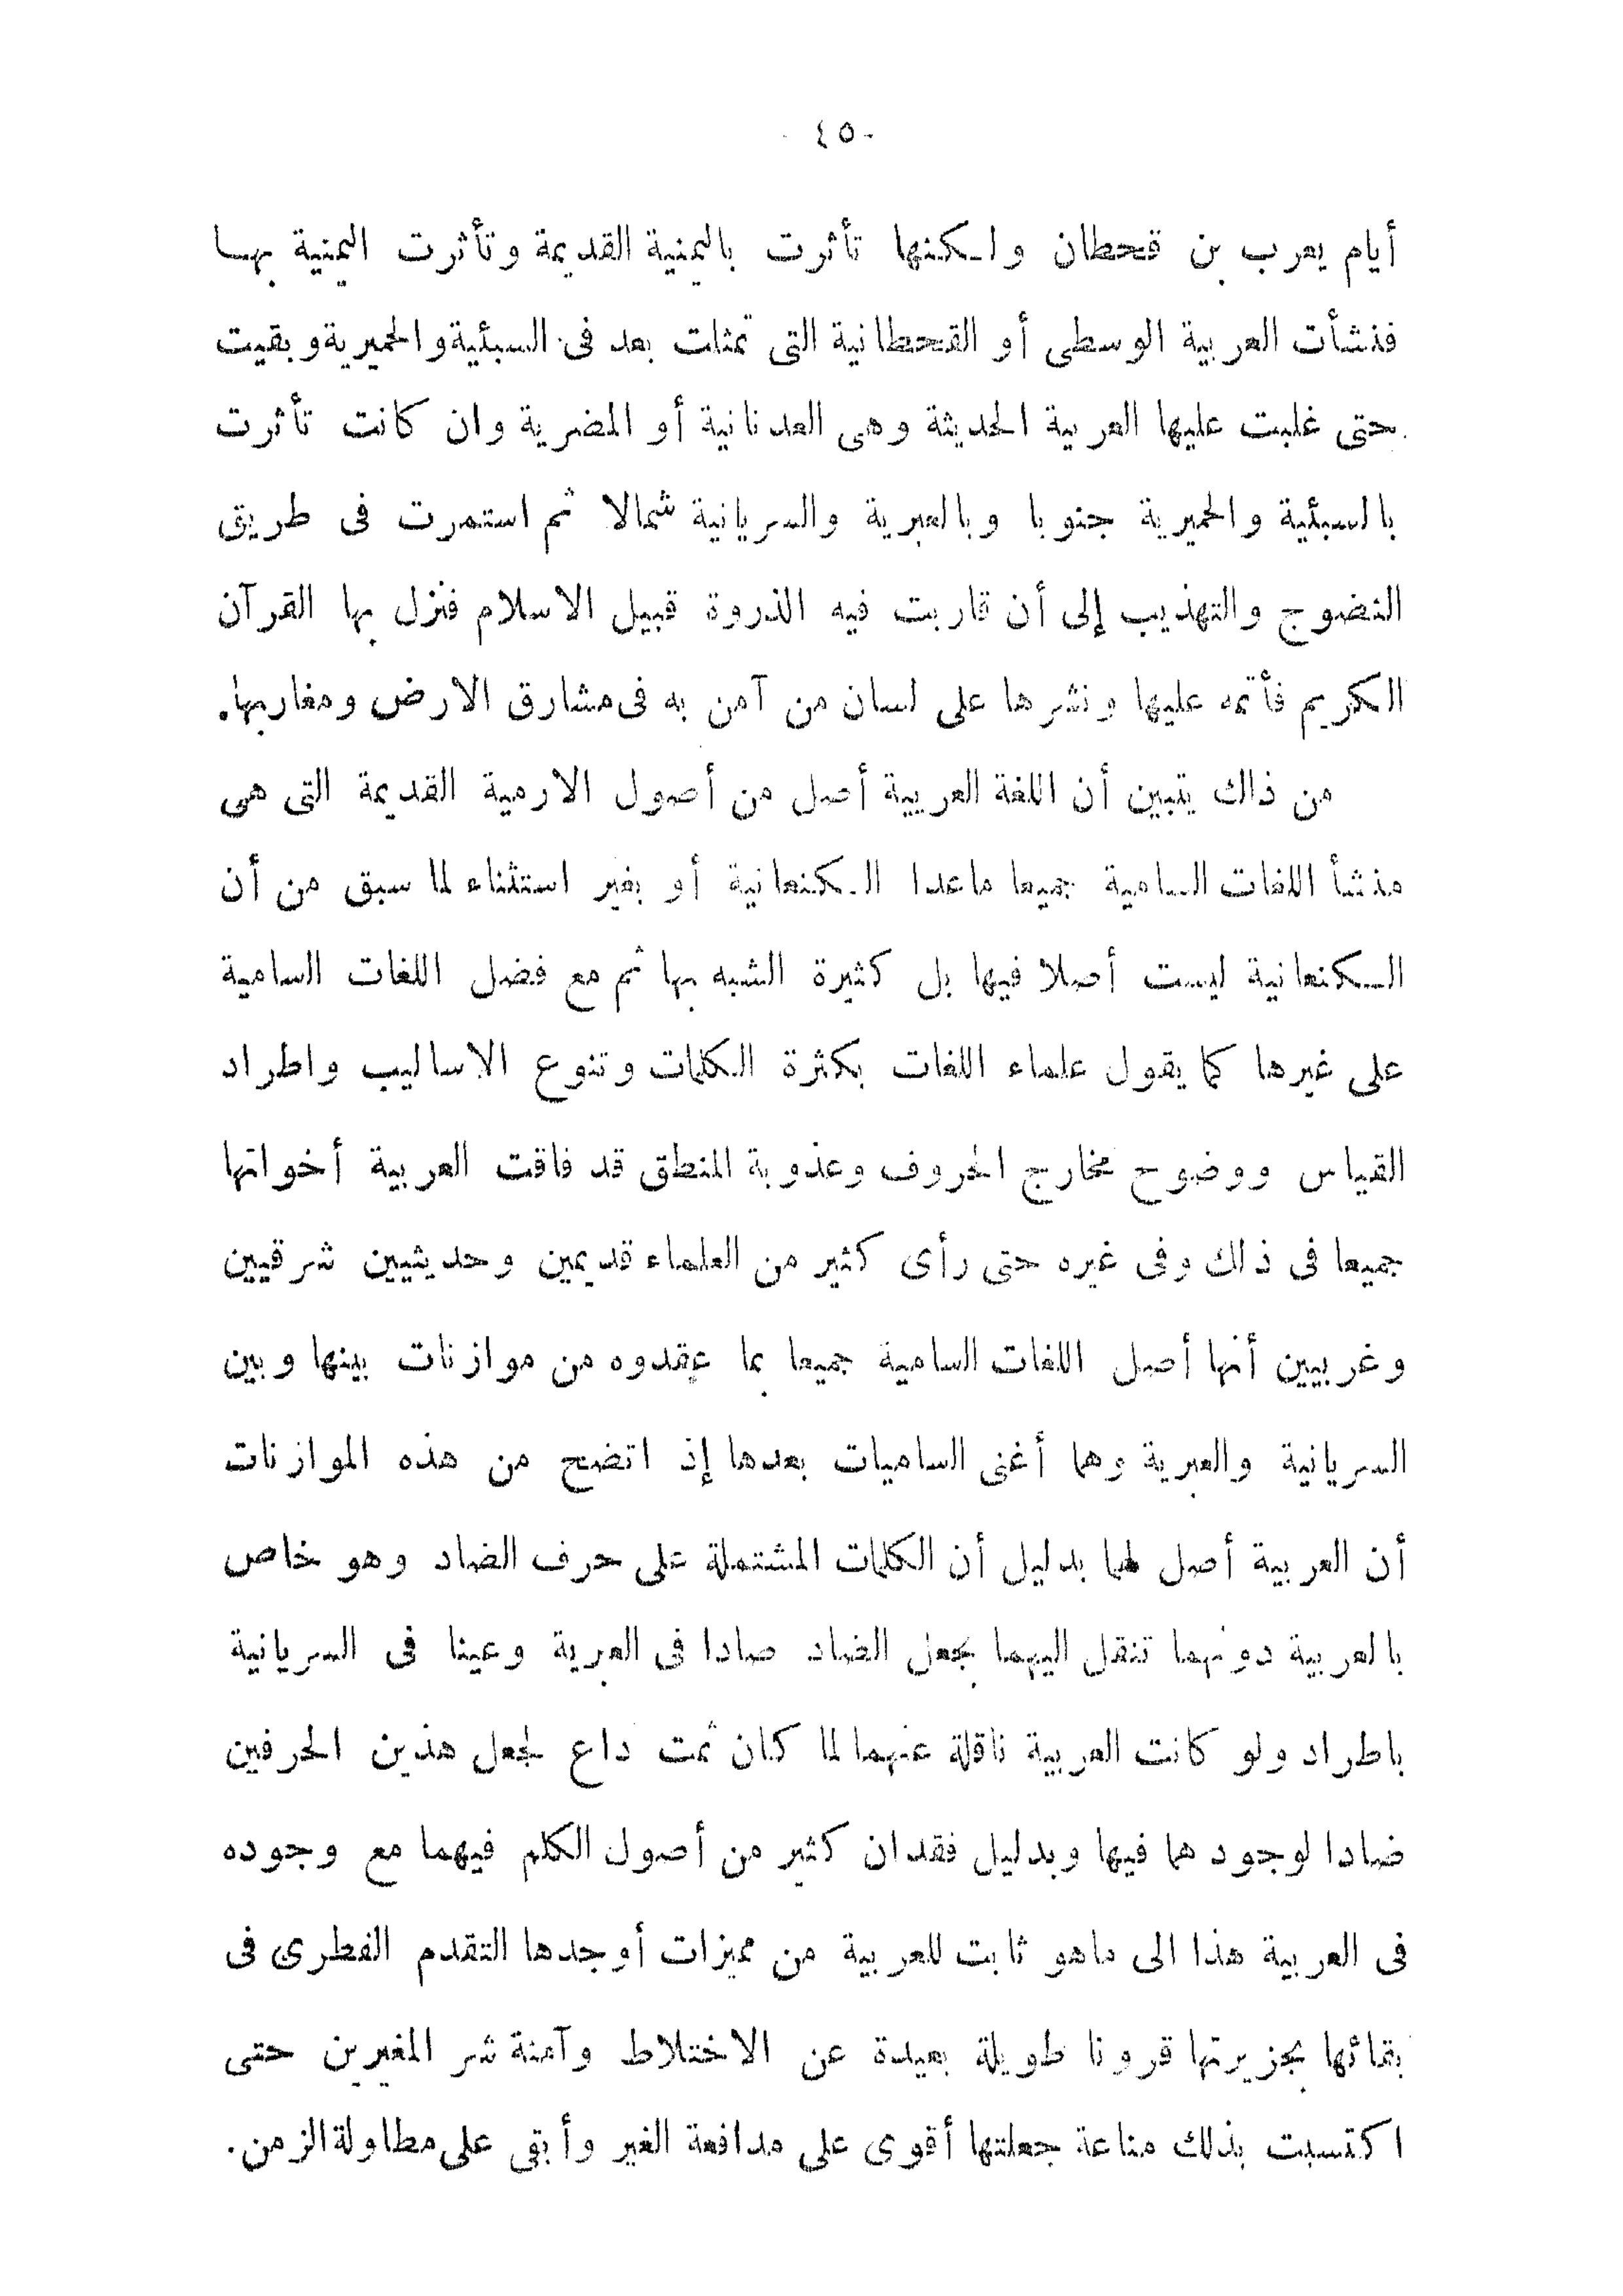 - ٤٥ -
أيام يعرب بن قحطان ولكنها تأثرت باليمنية القديمة وتأثرت اليمنية بها
فنشأت العربية الوسطى أو القحطانية التى تمثلت بعد فى السبئية والحميرية وبقيت
حتى غلبت عليها العربية الحديثة وهى العدنانية أو المضرية وان كانت تأثرت
بالسبئية والحميرية جنوبا وبالعبرية والسريانية شمالا ثم استمرت فى طريق
النضوج والتهذيب إلى أن قاربت فيه الذروة قبيل الاسلام فنزل بها القرآن
الكريم فأتمه عليها ونشرها على لسان من آمن به فى مشارق الارض ومغاربها.
من ذاك يتبين أن اللغة العربية أصل من أصول الارمية القديمة التى هى
منشأ اللغات السامية جميعا ماعدا الكنعانية أو بغير استثناء لما سبق من أن
الكنعانية ليست أصلا فيها بل كثيرة الشبه بها ثم مع فضل اللغات السامية
على غيرها كما يقول علماء اللغات بكثرة الكلمات وتنوع الاساليب واطراد
القياس ووضوح مخارج الحروف وعذوبة المنطق قد فاقت العربية أخواتها
جميعا فى ذلك وفى غيره حتى رأى كثير من العلماء قديمين وحديثيين شرقيين
وغربيين أنها أصل اللغات السامية جميعا بما عقدوه من موازنات بينها وبين
السريانية والعبرية وهما أغنى الساميات بعدها إذ اتضح من هذه الموازنات
أن العربية أصل لهما بدليل أن الكلمات المشتملة على حرف الضاد وهو خاص
بالعربية دونهما تنقل اليهما بجعل الضاد صادا فى العبرية وعينا فى السريانية
باطراد ولو كانت العربية ناقلة عنهما لما كان ثمت داع لجعل هذين الحرفين
ضادا لوجودهما فيها وبدليل فقدان كثير من أصول الكلم فيهما مع وجوده
فى العربية هذا الى ماهو ثابت للعربية من مميزات أوجدها التقدم الفطرى فى
بقائها بجزيرتها قرونا طويلة بعيدة عن الاختلاط وآمنة شر المغيرين حتى
اكتسبت بذلك مناعة جعلتها أقوى على مدافعة الغير وأبقى على مطاولة الزمن.